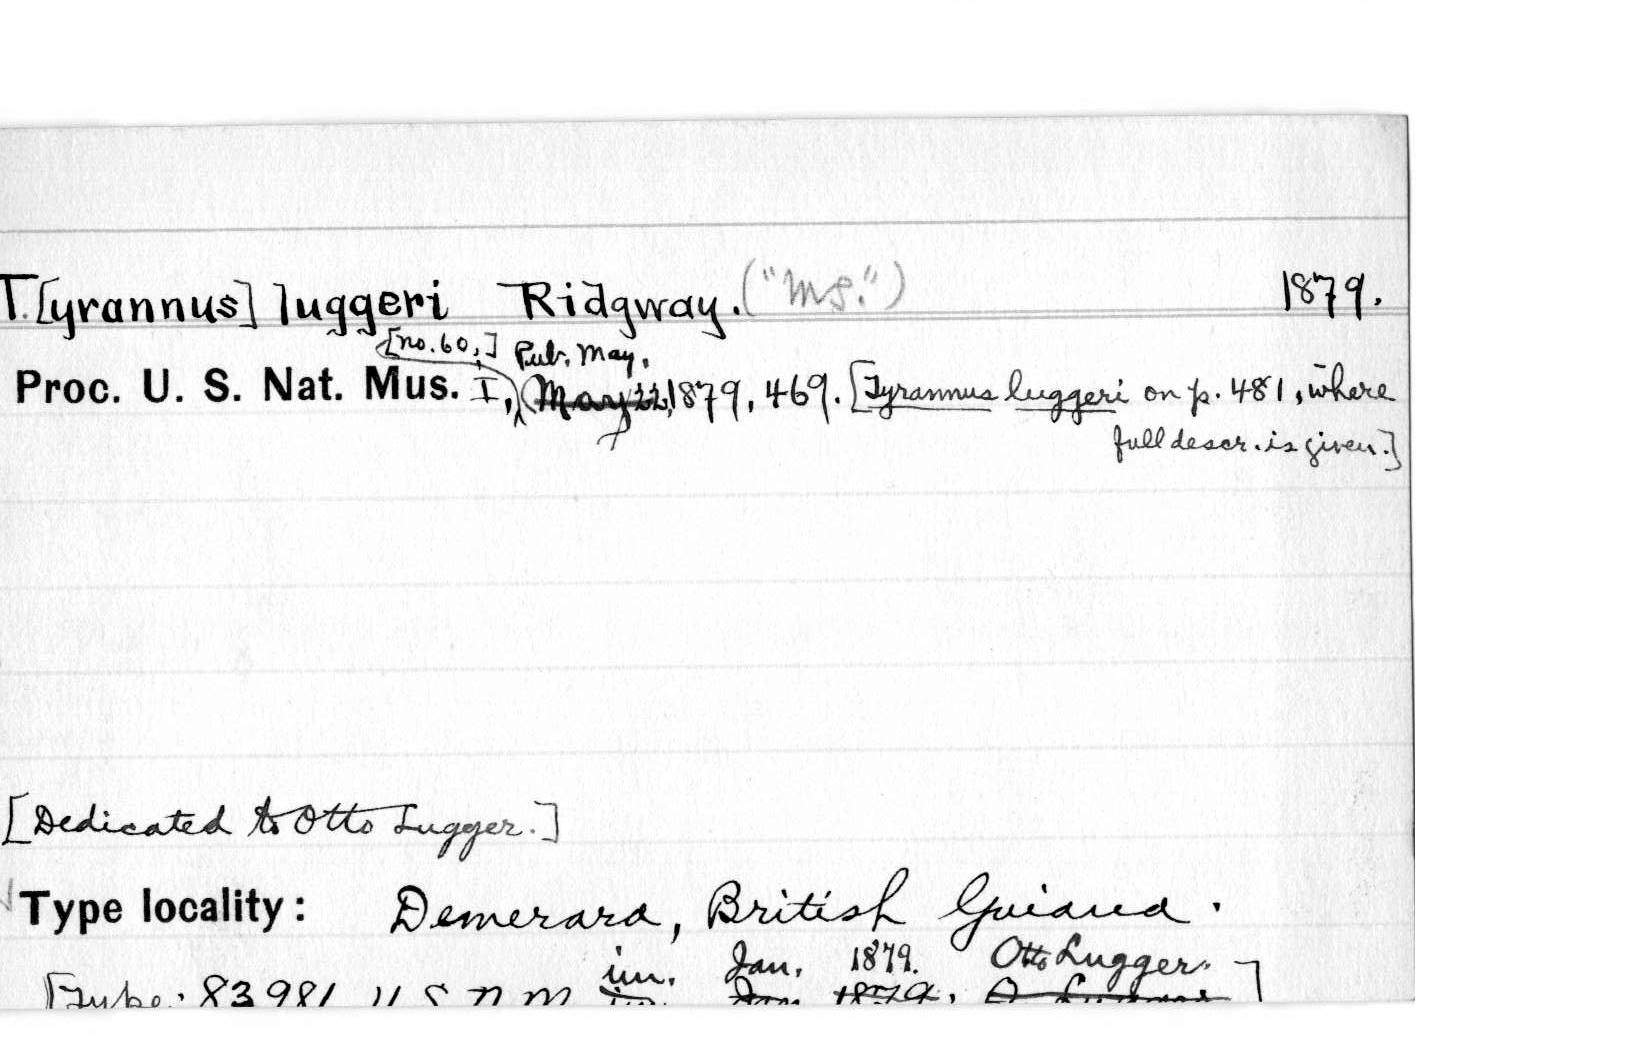 T.[yrannus] luggeri Ridgway. ("Ms.") 1879.
[no. 60,] Pub. May,
Proc. U. S. Nat. Mus. I, (May 22, 1879, 469. [Tyrannus luggeri on p. 481, where
full descr. is given.]
[Dedicated to Otto Lugger.]
Type locality: Demerara, British Guiana.
im. Jan. 1879. Otto Lugger. ]
[Type: 83981 U S N M Jan 1879. O Lugger